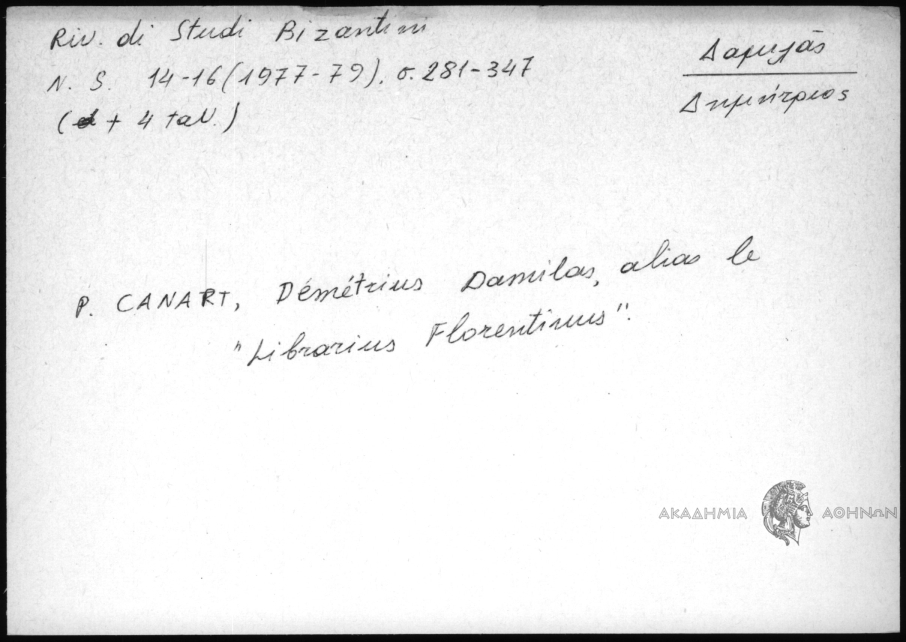 Riv. di Studi Bizantini
N. S. 14-16 (1977-79), σ. 281-347
( + 4 tav.)
Δαμιλᾶς
Δημήτριος
P. CANART, Démétrius Damilas, alias le
"Librarius Florentinus".
ΑΚΑΔΗΜΙΑ ΑΘΗΝΩΝ